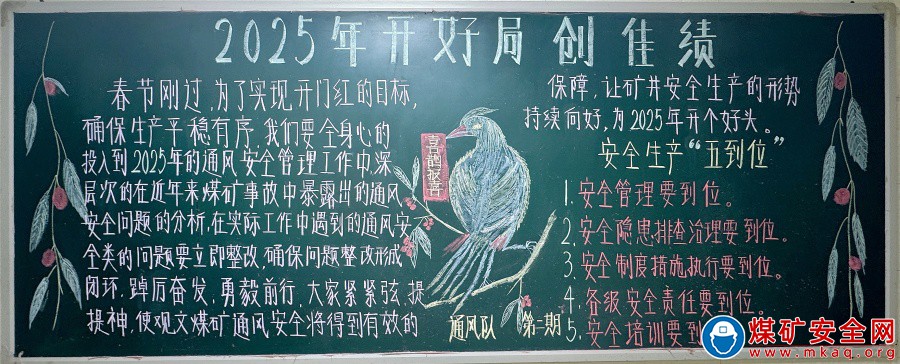 2025年开好局创佳绩
春节刚过,为了实现开门红的目标,
确保生产平稳有序,我们要全身心的
投入到2025年的通风安全管理工作中,深
层次的在近年来煤矿事故中暴露出的通风
安全问题的分析,在实际工作中遇到的通风安
全类的问题要立即整改,确保问题整改形成
闭环,踔厉奋发,勇毅前行,大家紧紧弦,提
提神,使观文煤矿通风安全将得到有效的
喜鹊报喜
保障,让矿井安全生产的形势
持续向好,为2025年开个好头。
安全生产“五到位”
1.安全管理要到位。
2.安全隐患排查治理要到位。
3.安全制度措施执行要到位。
4.各级安全责任要到位。
5.安全培训要到
通风队 第二期
煤矿安全网
www.mkaq.org